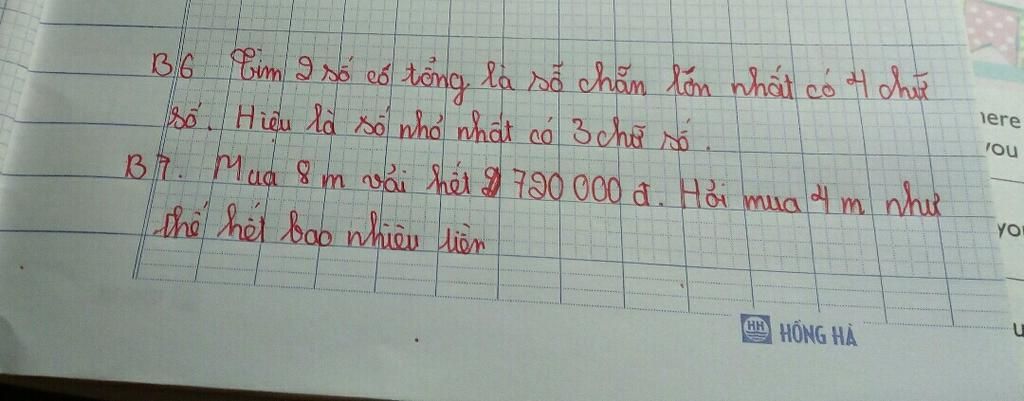 B6 Tìm 2 số có tổng là số chẵn lớn nhất có 4 chữ
số. Hiệu là số nhỏ nhất có 3 chữ số.
B7. Mua 8 m vải hết 720 000 đ. Hỏi mua 4 m như
thế hết bao nhiêu tiền
HH HỒNG HÀ
here
you
yo
u